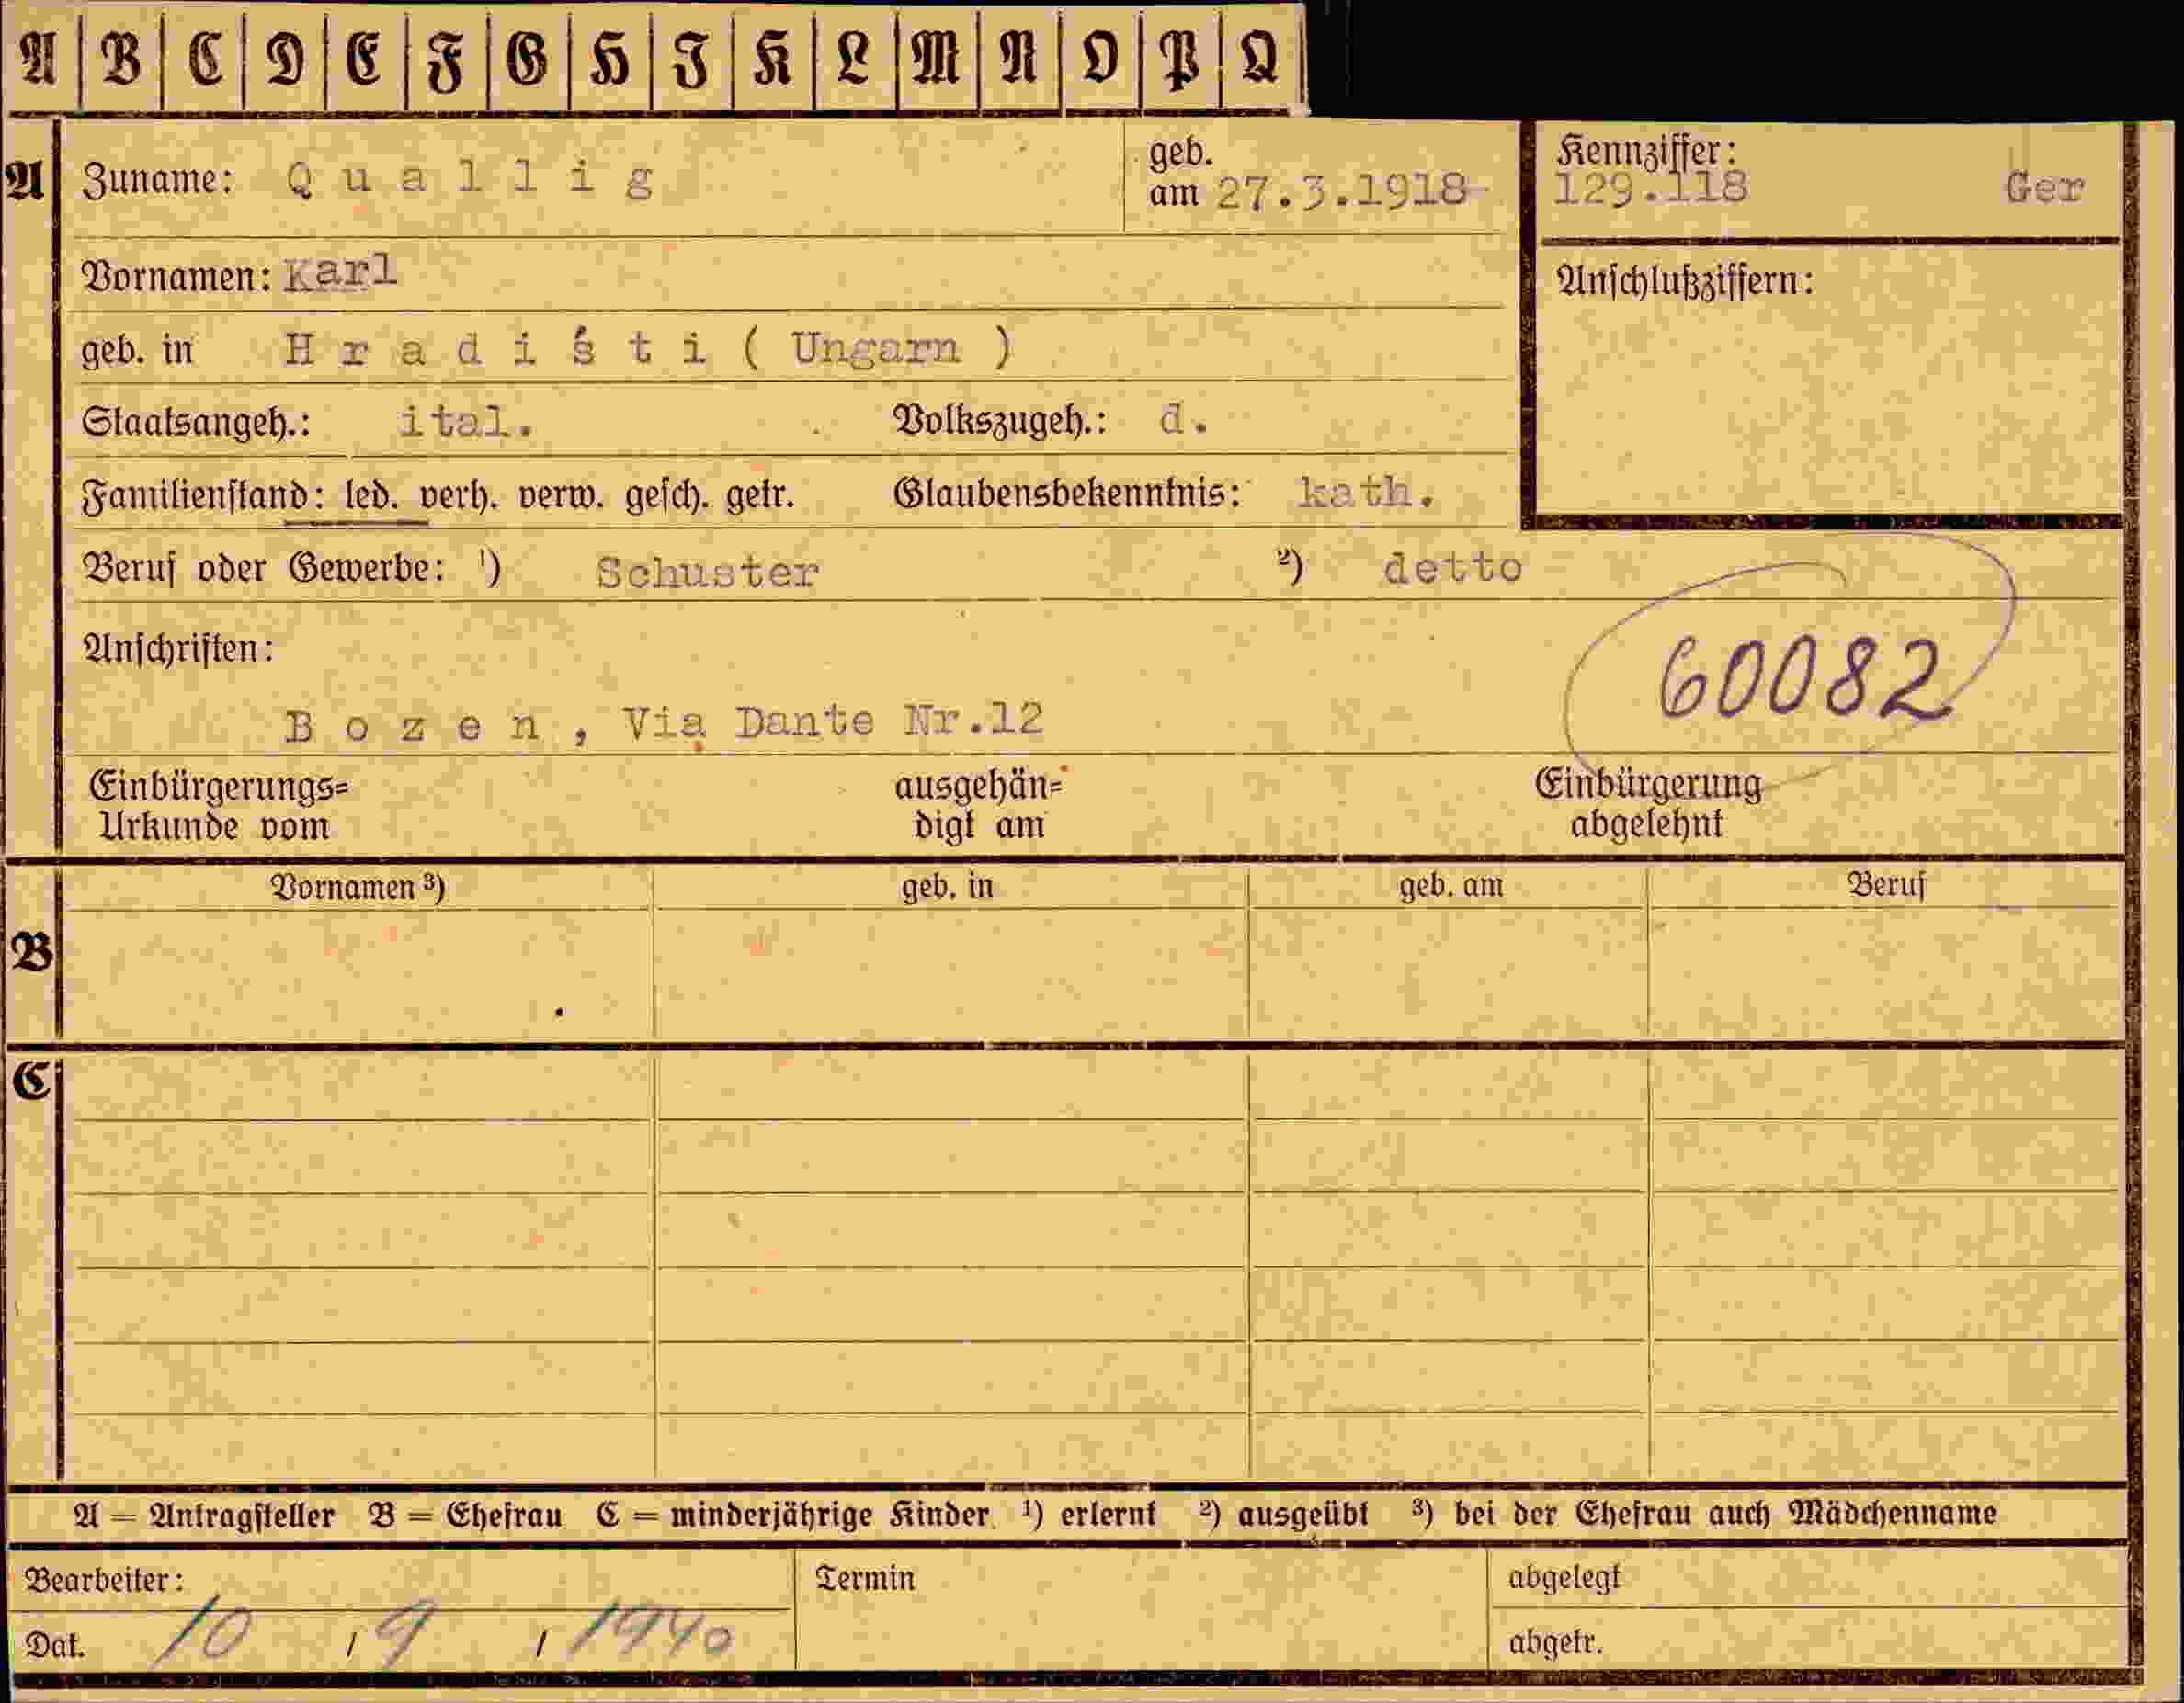 A B C D E F G H I K L M N O P Q
A Zuname: Quallig geb. am 27.3.1918 Kennziffer: 129.118 Ger
Vornamen: Karl Anschlußziffern:
geb. in Hradiśti (Ungarn)
Staatsangeh.: ital. Volkszugeh.: d.
Familienstand: led. verh. verw. gesch. getr. Glaubensbekenntnis: kath.
Beruf oder Gewerbe: ¹) Schuster ²) detto
Anschriften:
60082
Bozen, Via Dante Nr.12
Einbürgerungs= ausgehän= Einbürgerung
Urkunde vom digt am abgelehnt
Vornamen ³) geb. in geb. am Beruf
B
C
A = Antragsteller B = Ehefrau C = minderjährige Kinder. ¹) erlernt ²) ausgeübt ³) bei der Ehefrau auch Mädchenname
Bearbeiter: Termin abgelegt
Dat. 10 / 9 / 1940 abgetr.